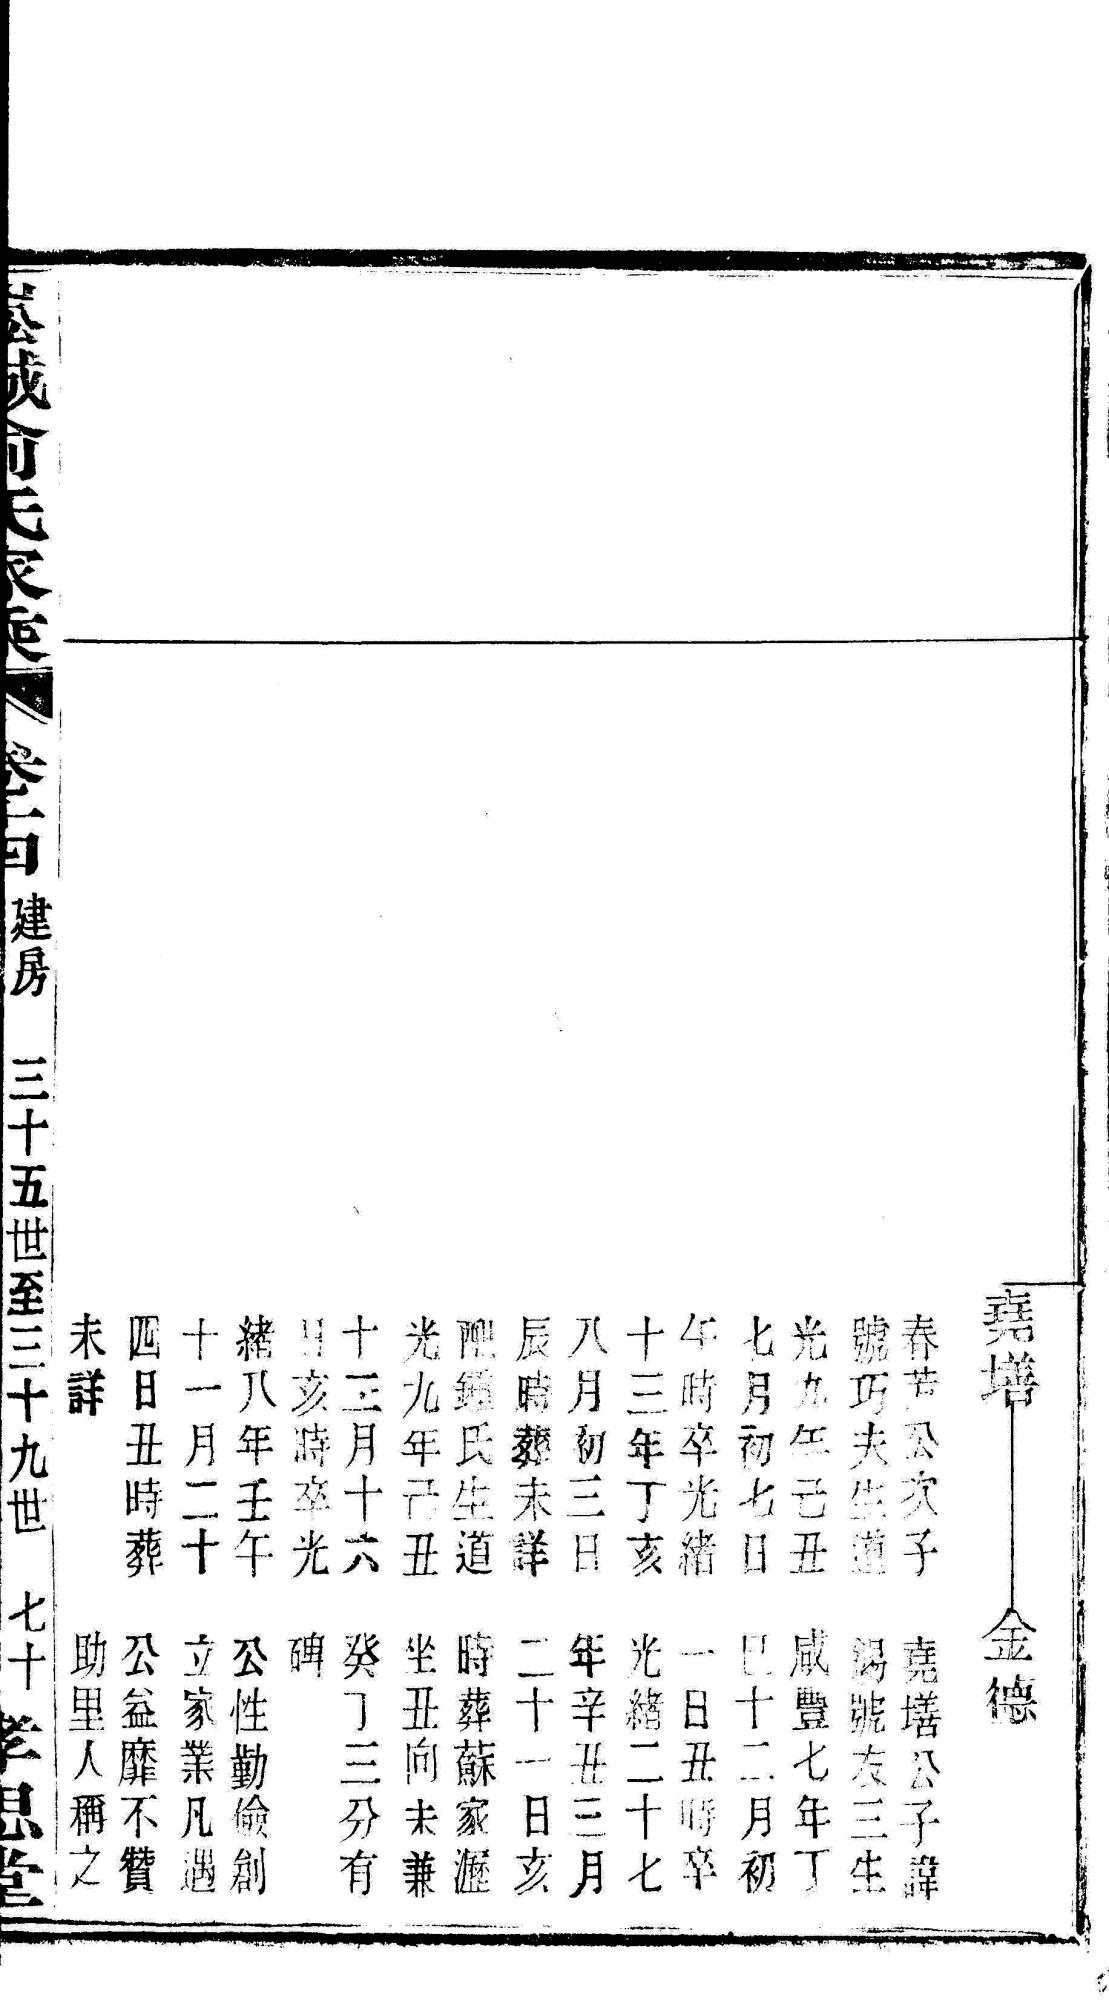 堯墡
春芳公次子
號巧夫生道
光九年己丑
七月初七日
午時卒光緒
十三年丁亥
八月初三日
辰時葬未詳
配鍾氏生道
光九年己丑
十二月十六
日亥時卒光
緒八年壬午
十一月二十
四日丑時葬
未詳
金德
堯墡公子諱
錫號友三生
咸豐七年丁
巳十二月初
一日丑時卒
光緒二十七
年辛丑三月
二十一日亥
時葬蘇家瀝
坐丑向未兼
癸丁三分有
碑
公性勤儉創
立家業凡遇
公益靡不贊
助里人稱之
崧城俞氏家乘
卷十四 建房 三十五世至三十九世 七十 孝思堂